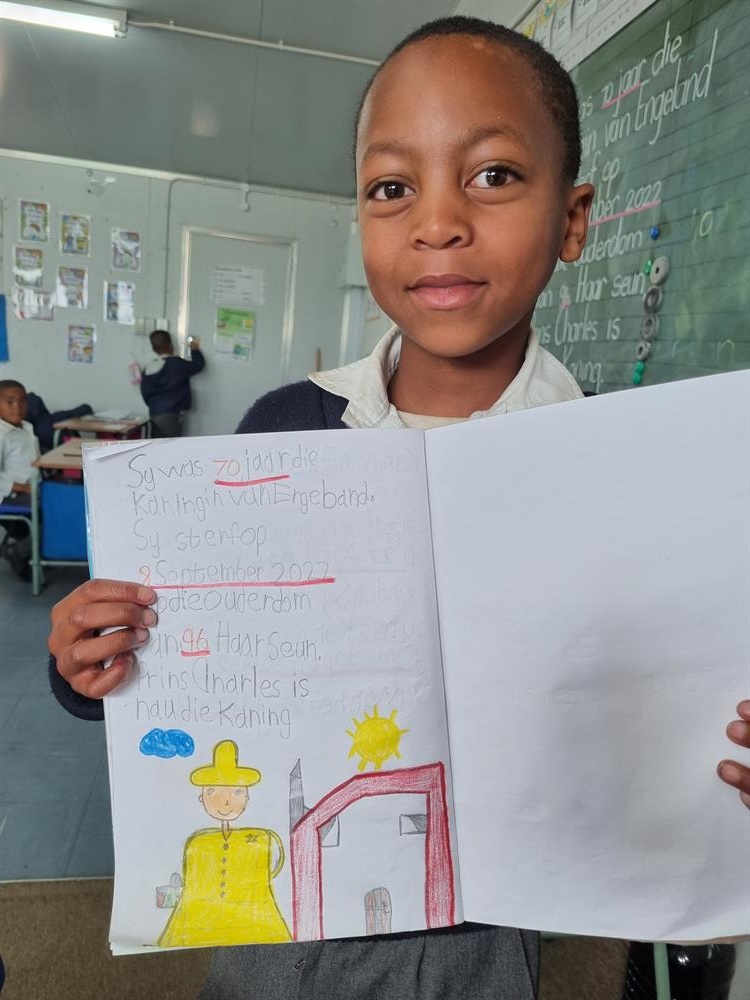 as 70 jaar die
n van Engeland
f op
mber 2022
ouderdom
Haar seun
rins Charles is
Koning.
Sy was 70 jaar die
Kaningin van Engeband.
Sy sterf op
8 September 2022
op die Ouderdom
an 96 Haar Seun.
Prins Charles is
nau die Kaning